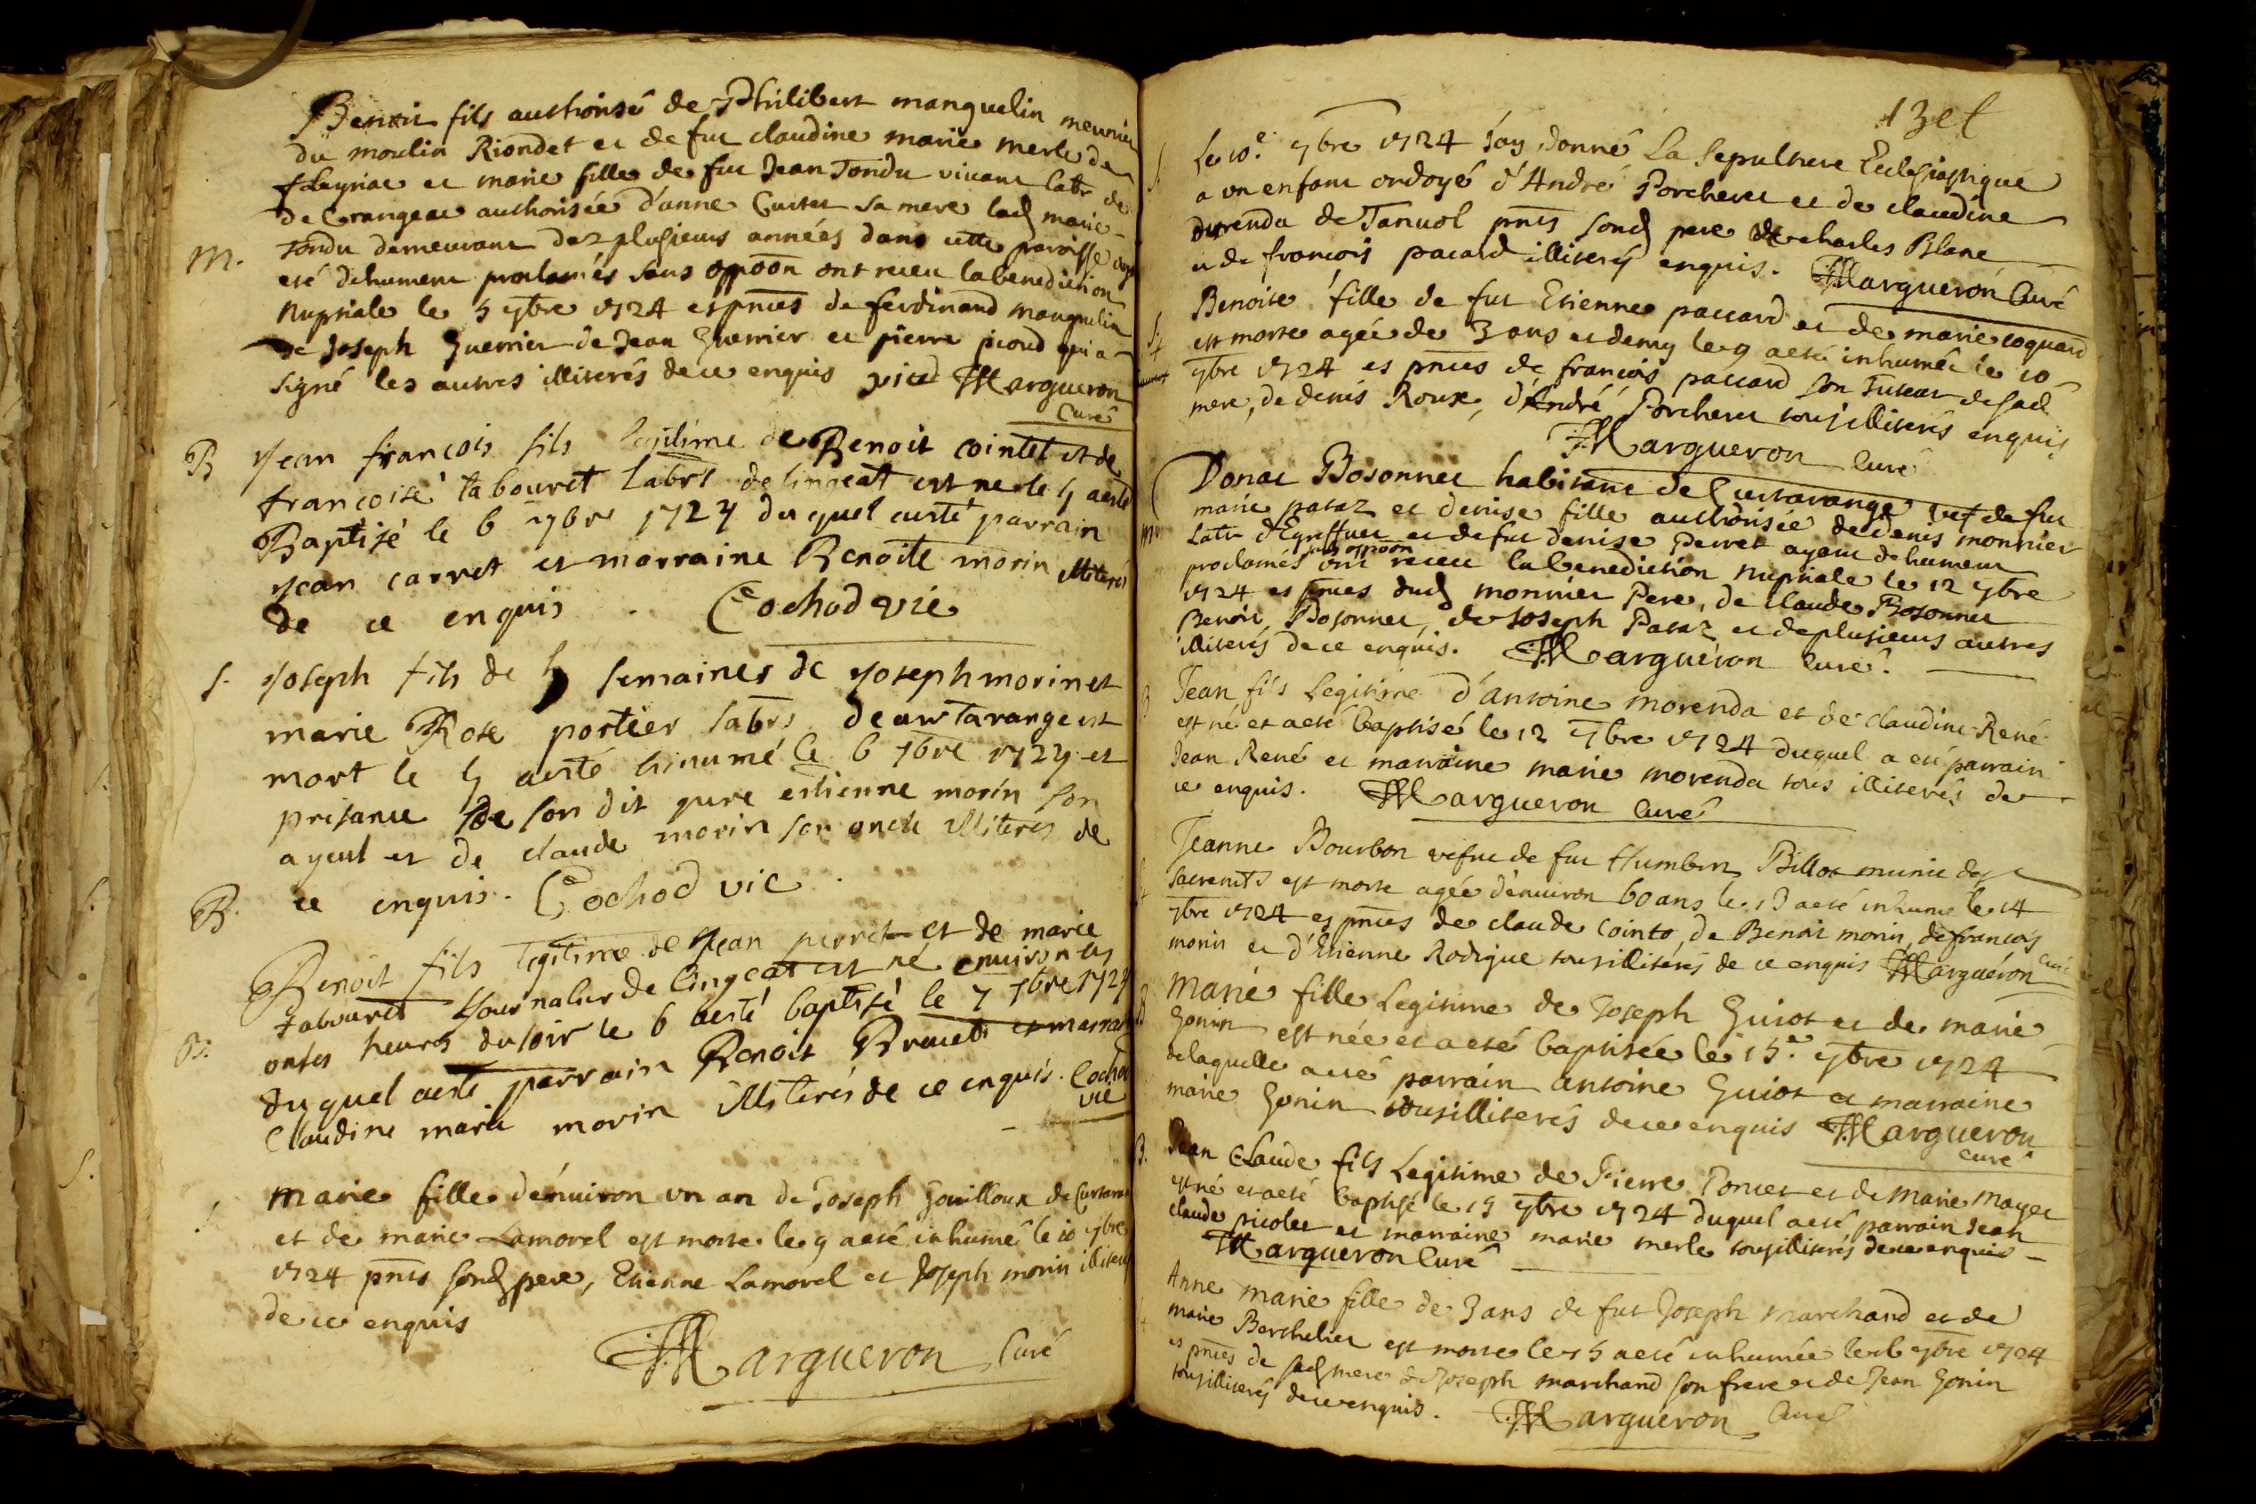 Benoit fils authorisé de Philibert manguelin meunier
du moulin Riondet et de fue claudine marie merle de
et marie fille de fue Jean Tondu vivant labr de
de Crangeac authorisée d'anne Curtet sa mere lad marie
M. Tondu demeurant dez plusieurs années dans cette paroisse
esté dehument proclamés sans oppoon ont receu la benediction
Nuptiale le 5 7bre 1724 es pnces de ferdinand manguelin
de Joseph Guerrier de Jean Guerrier et pierre picoud qui a
signé les autres illiterés de ce enquis Margueron
Curé
B Jean francois fils legitime de Benoit Cointet et de
francoise tabouret labrs de lingeat est ne le 5 aesté
Baptisé le 6 7bre 1724 du quel aesté parrain
Jean carret et marraine Benoite morin illiterés
de ce enquis . Cochod vic
S. Joseph fils de 5 semaines de Joseph morin et
marie Rose portier labrs de curtarange est
mort le 5 aesté hinumé le 6 7bre 1724 et
presance de son dit pere estienne morin son
ayeul et de claude morin son oncle illiteres de
ce enquis. Cochod vic .
B. Benoit fils legitime de Jean perret et de marie
Tabouret Journalier de lingeat est né environ les
B. onses heures du soir le 6 aesté baptisé le 7 7bre 1724
du quel aesté parrain Benoit Brunet et marraine
Claudine marie morin illiterés de ce enquis. Cochod
vic
Marie fille d'environ un an de Joseph Gouilloux de
et de marie Lamorel est morte le 9 a eté inhumé le 10 7bre
1724 pnts sond pere, Etienne Lamorel et Joseph morin illiterés
de ce enquis
Margueron Curé
S. Le 10e 7bre 1724 J'ay donné La Sepulture Eclesiastique
a un enfant ondoyé d'André Porcheret et de claudine
durenda de Tanuol pnts sond pere de charles Blanc
et de francois pacard illiterés enquis. Margueron Curé
Benoite fille de fut Etienne paccard et de marie coquard
est morte agée de 3 ans et demy le 9 a eté inhumée le 10
7bre 1724 es pnces de francois paccard son tuteur de sad
mere, de denis Roux, d'André Porcheret tous illiterés enquis
Margueron Curé
Donat Bosonnet habitant de Curtarange de fut
marie pataz et denise fille authorisée de denis monnier
M. labr d'Egreffuet et de fut denise Perret ayant dehument
sans oppoon
proclamés ont receu la benediction Nuptiale le 12 7bre
1724 es pnces dud monnier Pere, de claude Bosonnet
Benoit Bosonnet, de Joseph Pataz et de plusieurs autres
illiterés de ce enquis. Margueron Curé.
Jean fils Legitime d'Antoine morenda et de claudine René
est né et a eté baptisé le 12 7bre 1724 duquel a eté parrain
Jean René et marraine marie morenda tous illiterés de
ce enquis. Margueron Curé
Jeanne Bourbon vefue de fut Humbert Billot munie des
sacremts est morte agée d'environ 60 ans le 13 a eté inhumé le 14
7bre 1724 es pnces de claude Cointo, de Benoit morin, de francois
morin et d'Etienne Rodigue tous illiterés de ce enquis Margueron Curé
B Marie fille Legitime de Joseph Guiot et de marie
Gonin est née et a eté baptisée le 15e 7bre 1724
de laquelle a eté parrain Antoine Guiot et marraine
marie Gonin tous illiterés de ce enquis Margueron
curé
B. Jean Claude fils Legitime de Pierre Poncet et de Marie Mayet
est né et a eté baptisé le 15 7bre 1724 duquel a eté parrain Jean
claude picolet et marraine marie merle tous illiterés de ce enquis
Margueron Curé
Anne Marie fille de 3 ans de fut Joseph Marchand et de
marie Berthelier est morte le 15 a eté inhumée le 16 7bre 1724
es pnces de sad mere de Joseph marchand son frere et de Jean Gonin
tous illiterés de ce enquis. Margueron Curé